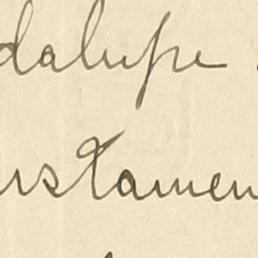 dalupe
ustamen